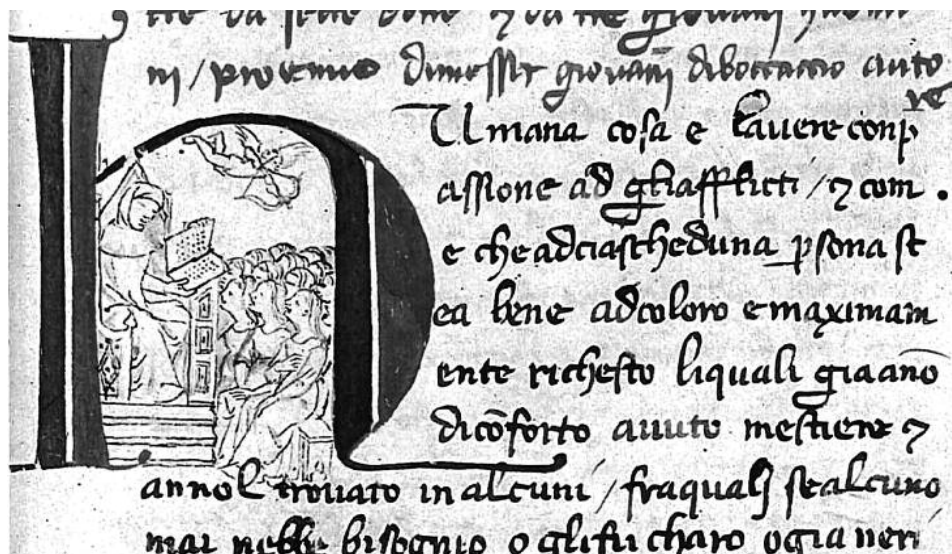 tte da sette donne ⁊ da tre giovani huomi
ni / proemio dimesser giovāni diboccaccio auto
re
H Umana cosa e lavere conp
assione ad gliafflicti / ⁊ com
e che adciascheduna ꝑsona st
ea bene adcoloro e maximam
ente richesto liquali gia āno
dicōforto avuto mestiere ⁊
annol trovato in alcuni / fraquali sealcuno
mai nebbe bisognio o glifu charo o gia neri